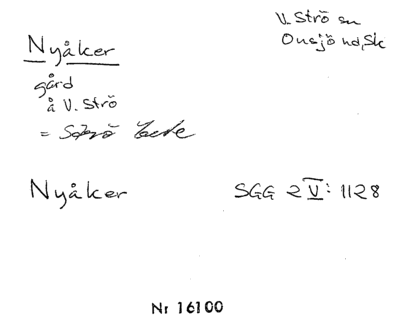 V. Strö sn
Onsjö hd, Sk
Nyåker
gård
å V. Strö
= Strö
Nyåker SGG 2 V: 1128
Nr 16100